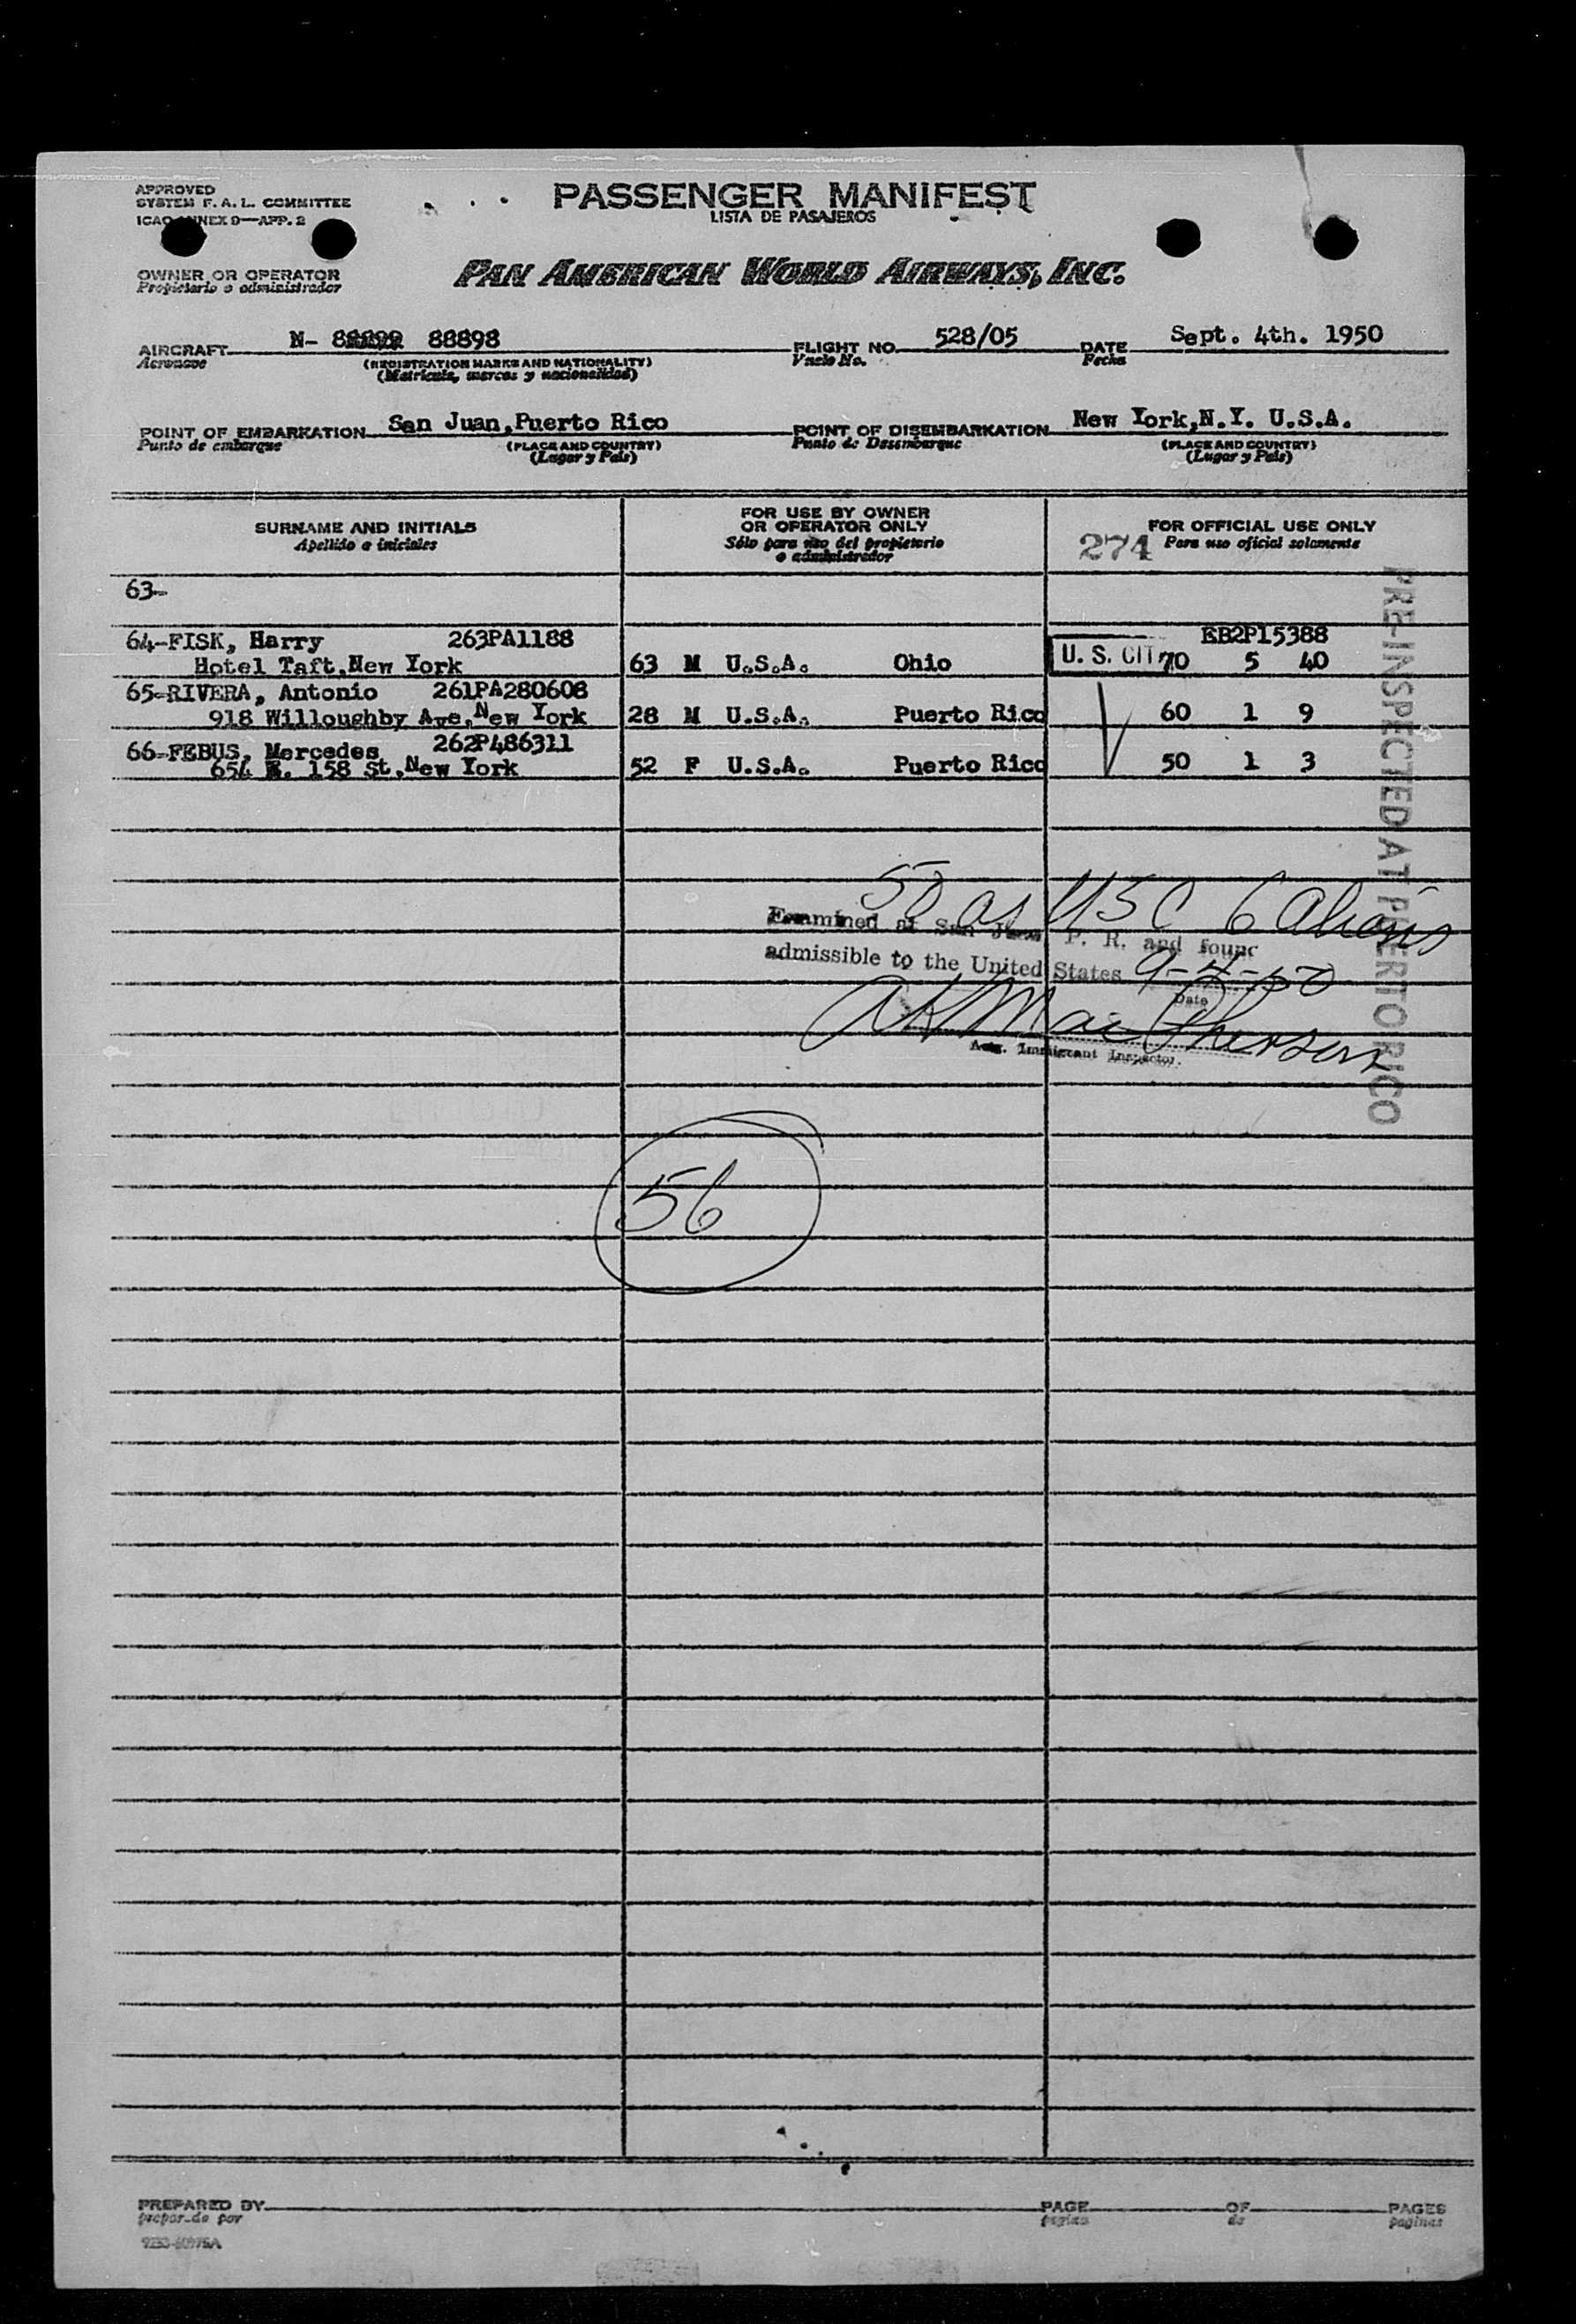 APPROVED
SYSTEM F. A. L. COMMITTEE
ICAO ANNEX 9—APP. 2
PASSENGER MANIFEST
LISTA DE PASAJEROS
OWNER OR OPERATOR
Propietario o administrador
PAN AMERICAN WORLD AIRWAYS, INC.
AIRCRAFT N- 88898
Aeronave
(REGISTRATION MARKS AND NATIONALITY)
(Matricula, marcas y nacionalidad)
FLIGHT NO. 528/05
Vuelo No.
DATE Sept. 4th. 1950
Fecha
POINT OF EMBARKATION San Juan,Puerto Rico
Punto de embarque
(PLACE AND COUNTRY)
(Lugar y Pais)
POINT OF DISEMBARKATION New York,N.Y. U.S.A.
Punto de Desembarque
(PLACE AND COUNTRY)
(Lugar y Pais)
SURNAME AND INITIALS
Apellido e iniciales
FOR USE BY OWNER
OR OPERATOR ONLY
Sólo para uso del propietario
o administrador
FOR OFFICIAL USE ONLY
274 Para uso oficial solamente
63-
64-FISK, Harry 263PA1188 EB2P15388
Hotel Taft,New York 63 M U.S.A. Ohio U. S. CIT 70 5 40
65-RIVERA, Antonio 261PA280608
918 Willoughby Ave,New York 28 M U.S.A. Puerto Rico 60 1 9
66-FEBUS, Mercedes 262P486311
654 E. 158 St,New York 52 F U.S.A. Puerto Rico 50 1 3
PRE-INSPECTED AT PUERTO RICO
50 as USC 6 Aliens
Examined at San Juan P. R. and found
admissible to the United States 9-4-50
Date
A K MacPherson
Immigrant Inspector.
56
PREPARED BY
preparado por
PAGE OF PAGES
pagina de paginas